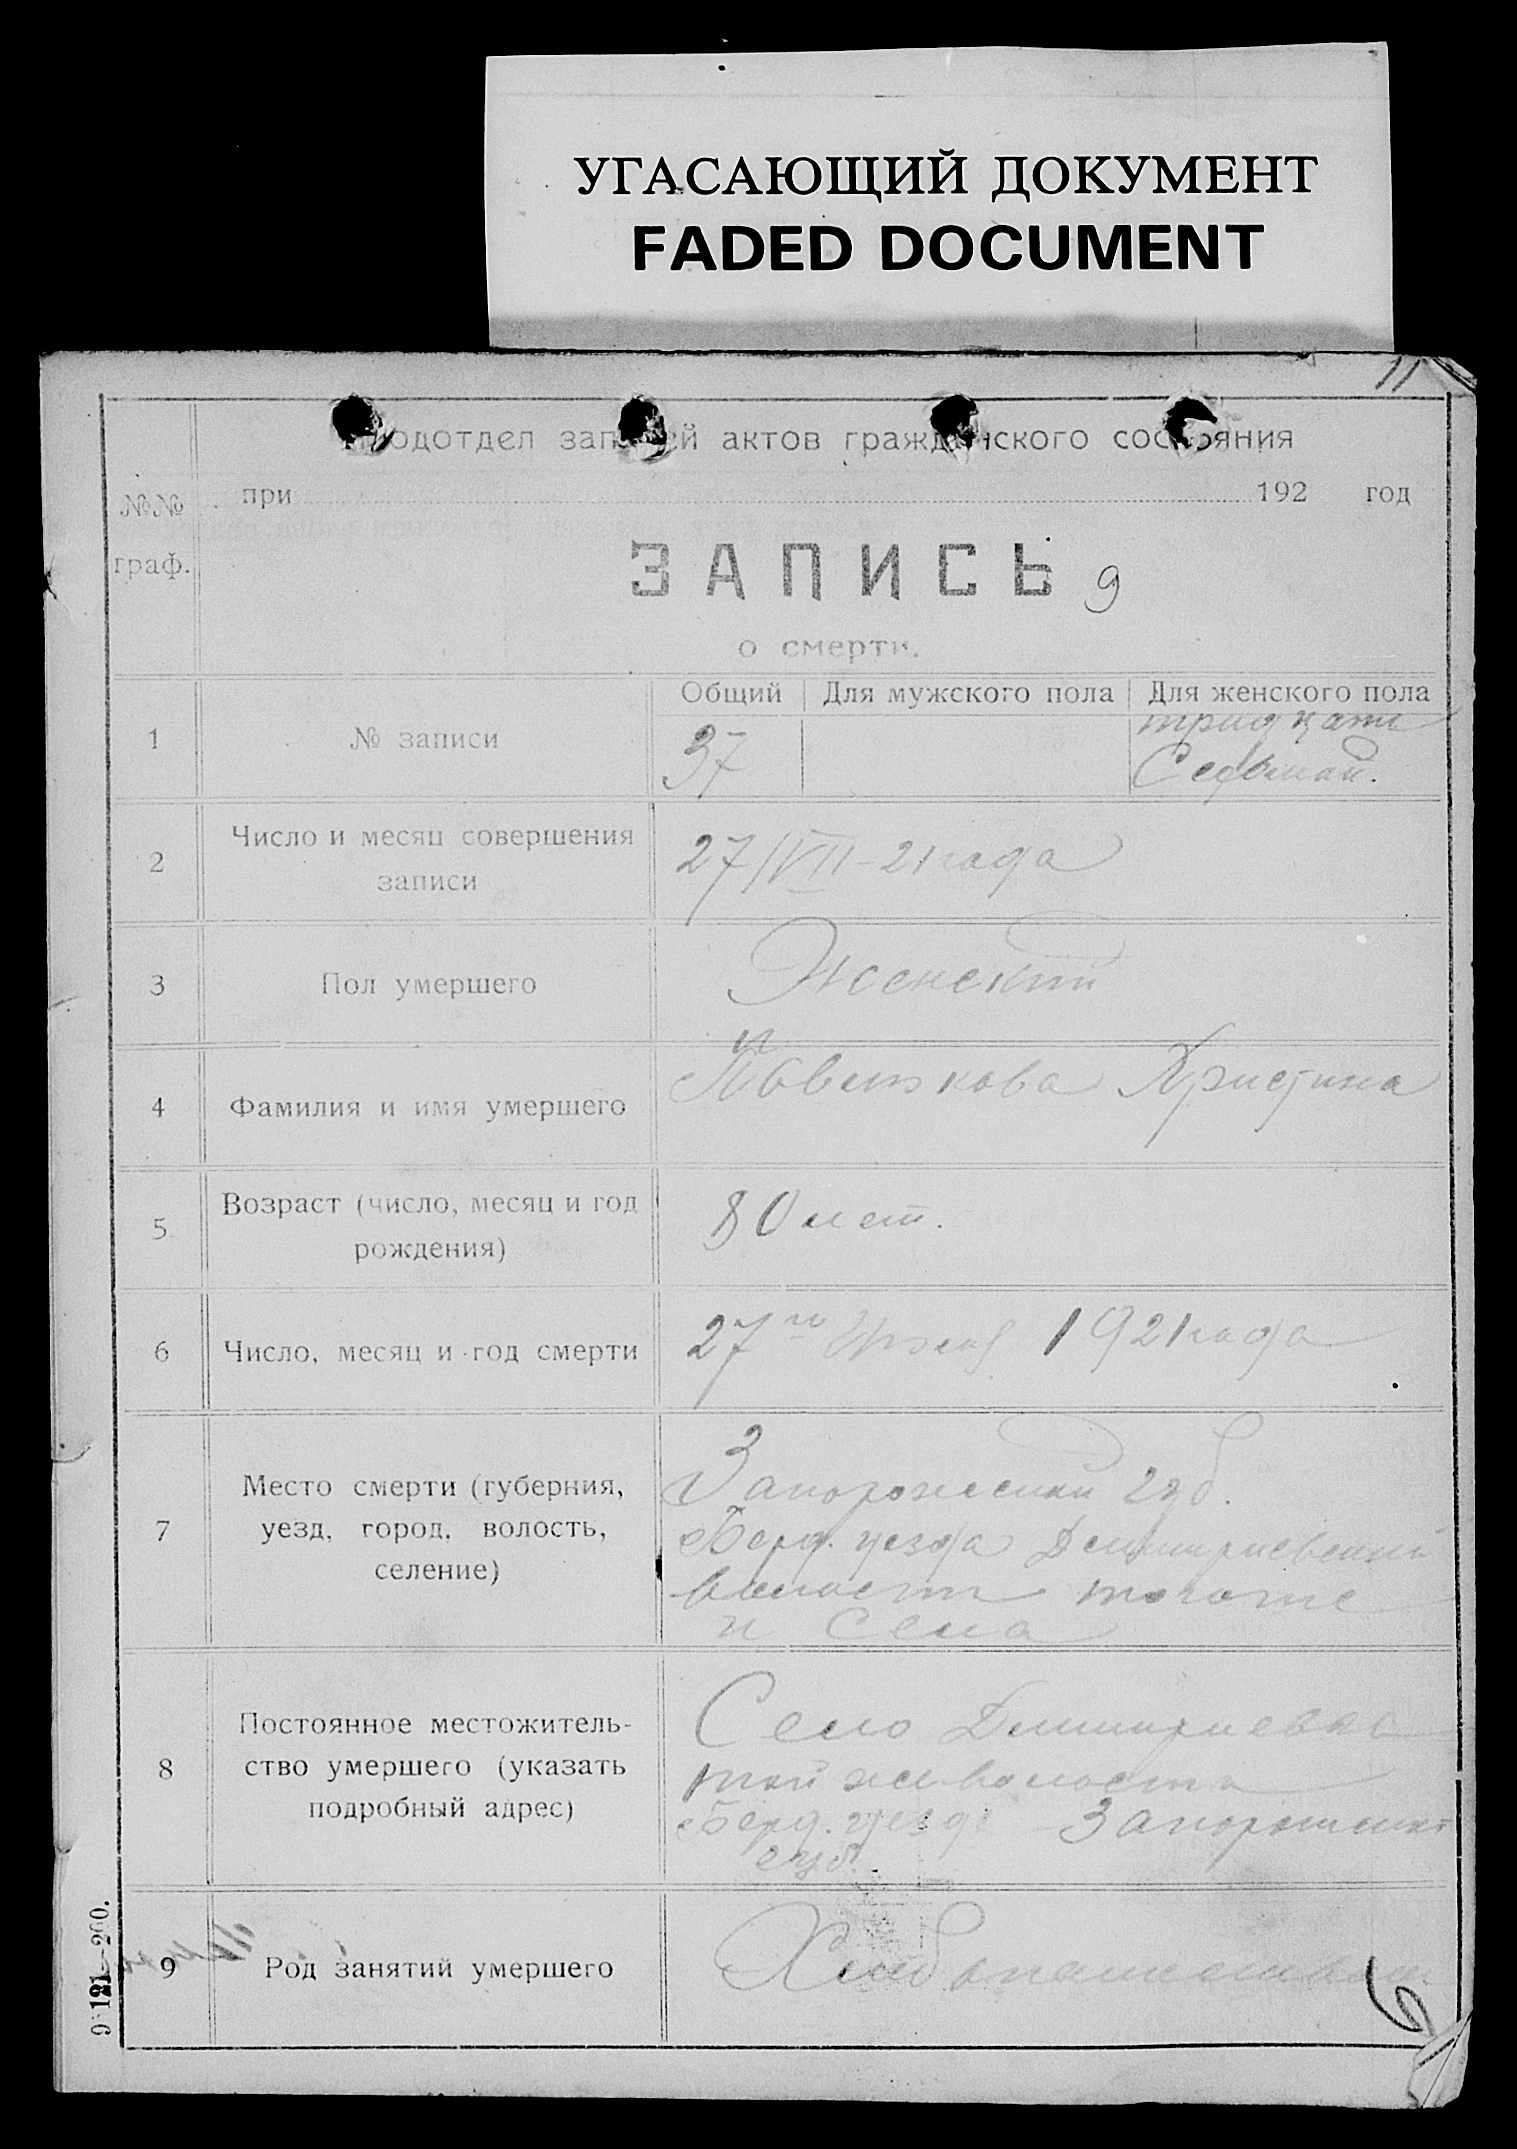 УГАСАЮЩИЙ ДОКУМЕНТ
FADED DOCUMENT
11
Подотдел записей актов гражданского состояния
при 192 год
№№
граф.
ЗАПИСЬ 9
о смерти.
Общий Для мужского пола Для женского пола
1 № записи 37 тридцать
Седьмой.
2 Число и месяц совершения
записи
27/VII 21 года
3 Пол умершего Женский
4 Фамилия и имя умершего Христина
5 Возраст (число, месяц и год
рождения)
80 лет.
6 Число, месяц и год смерти 27го 1921 года
7 Место смерти (губерния,
уезд, город, волость,
селение)
Запорожской губ.
Берд. уезда Дмитриевской
волости того же
и Села
8 Постоянное местожитель-
ство умершего (указать
подробный адрес)
Село Дмитриевка
той же волости
Берд. уезда Запорожской
губ.
9 Род занятий умершего Хлебопашество
6